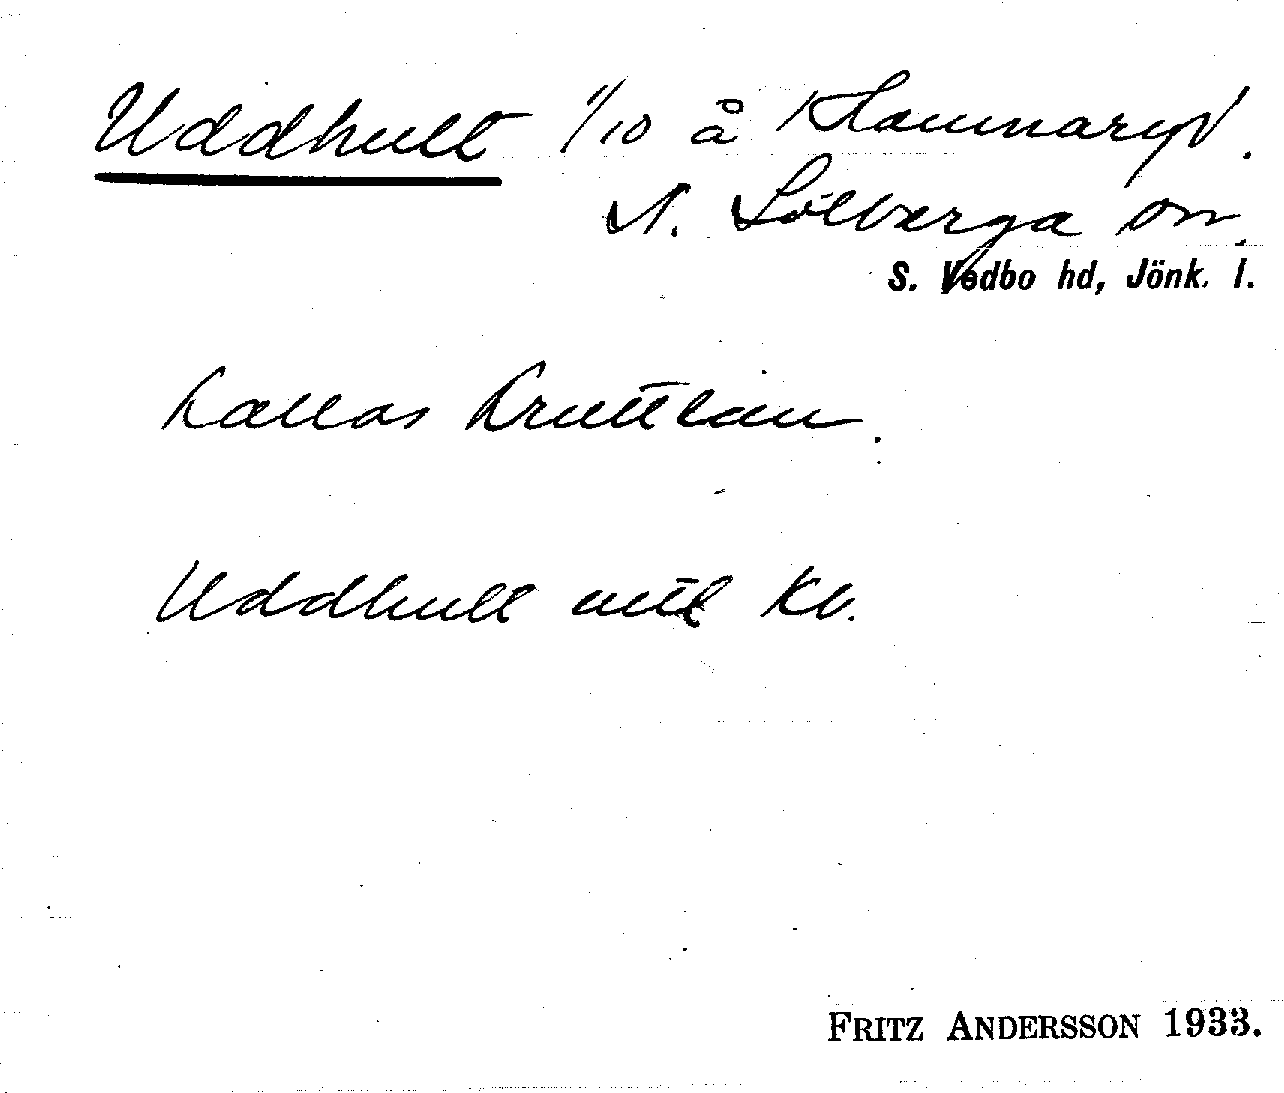 Uddhult 1/10 å Hammaryd.
N. Solberga sn.
S. Vedbo hd, Jönk. l.
Kallas Kruttlan.
Uddhult utl Kb.
FRITZ ANDERSSON 1933.